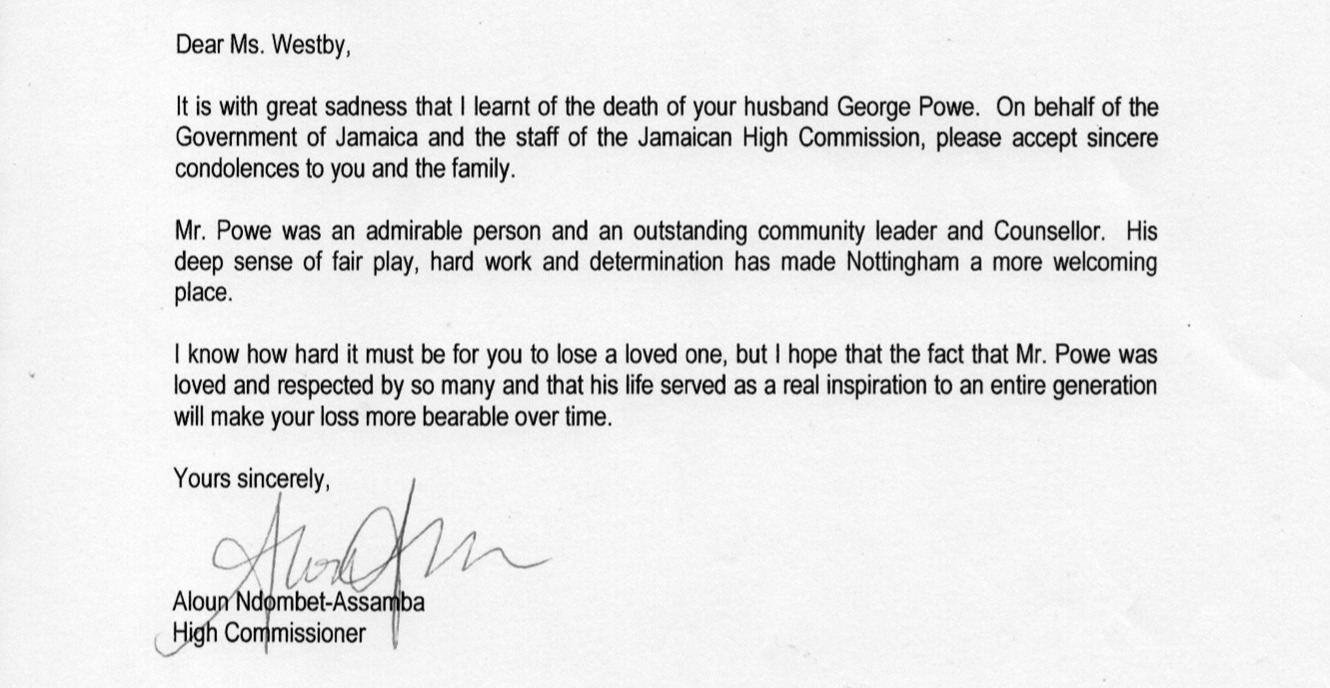 Dear Ms. Westby,
It is with great sadness that I learnt of the death of your husband George Powe.  On behalf of the
Government of Jamaica and the staff of the Jamaican High Commission, please accept sincere
condolences to you and the family.
Mr. Powe was an admirable person and an outstanding community leader and Counsellor.  His
deep sense of fair play, hard work and determination has made Nottingham a more welcoming
place.
I know how hard it must be for you to lose a loved one, but I hope that the fact that Mr. Powe was
loved and respected by so many and that his life served as a real inspiration to an entire generation
will make your loss more bearable over time.
Yours sincerely,
Aloun Ndombet-Assamba
High Commissioner